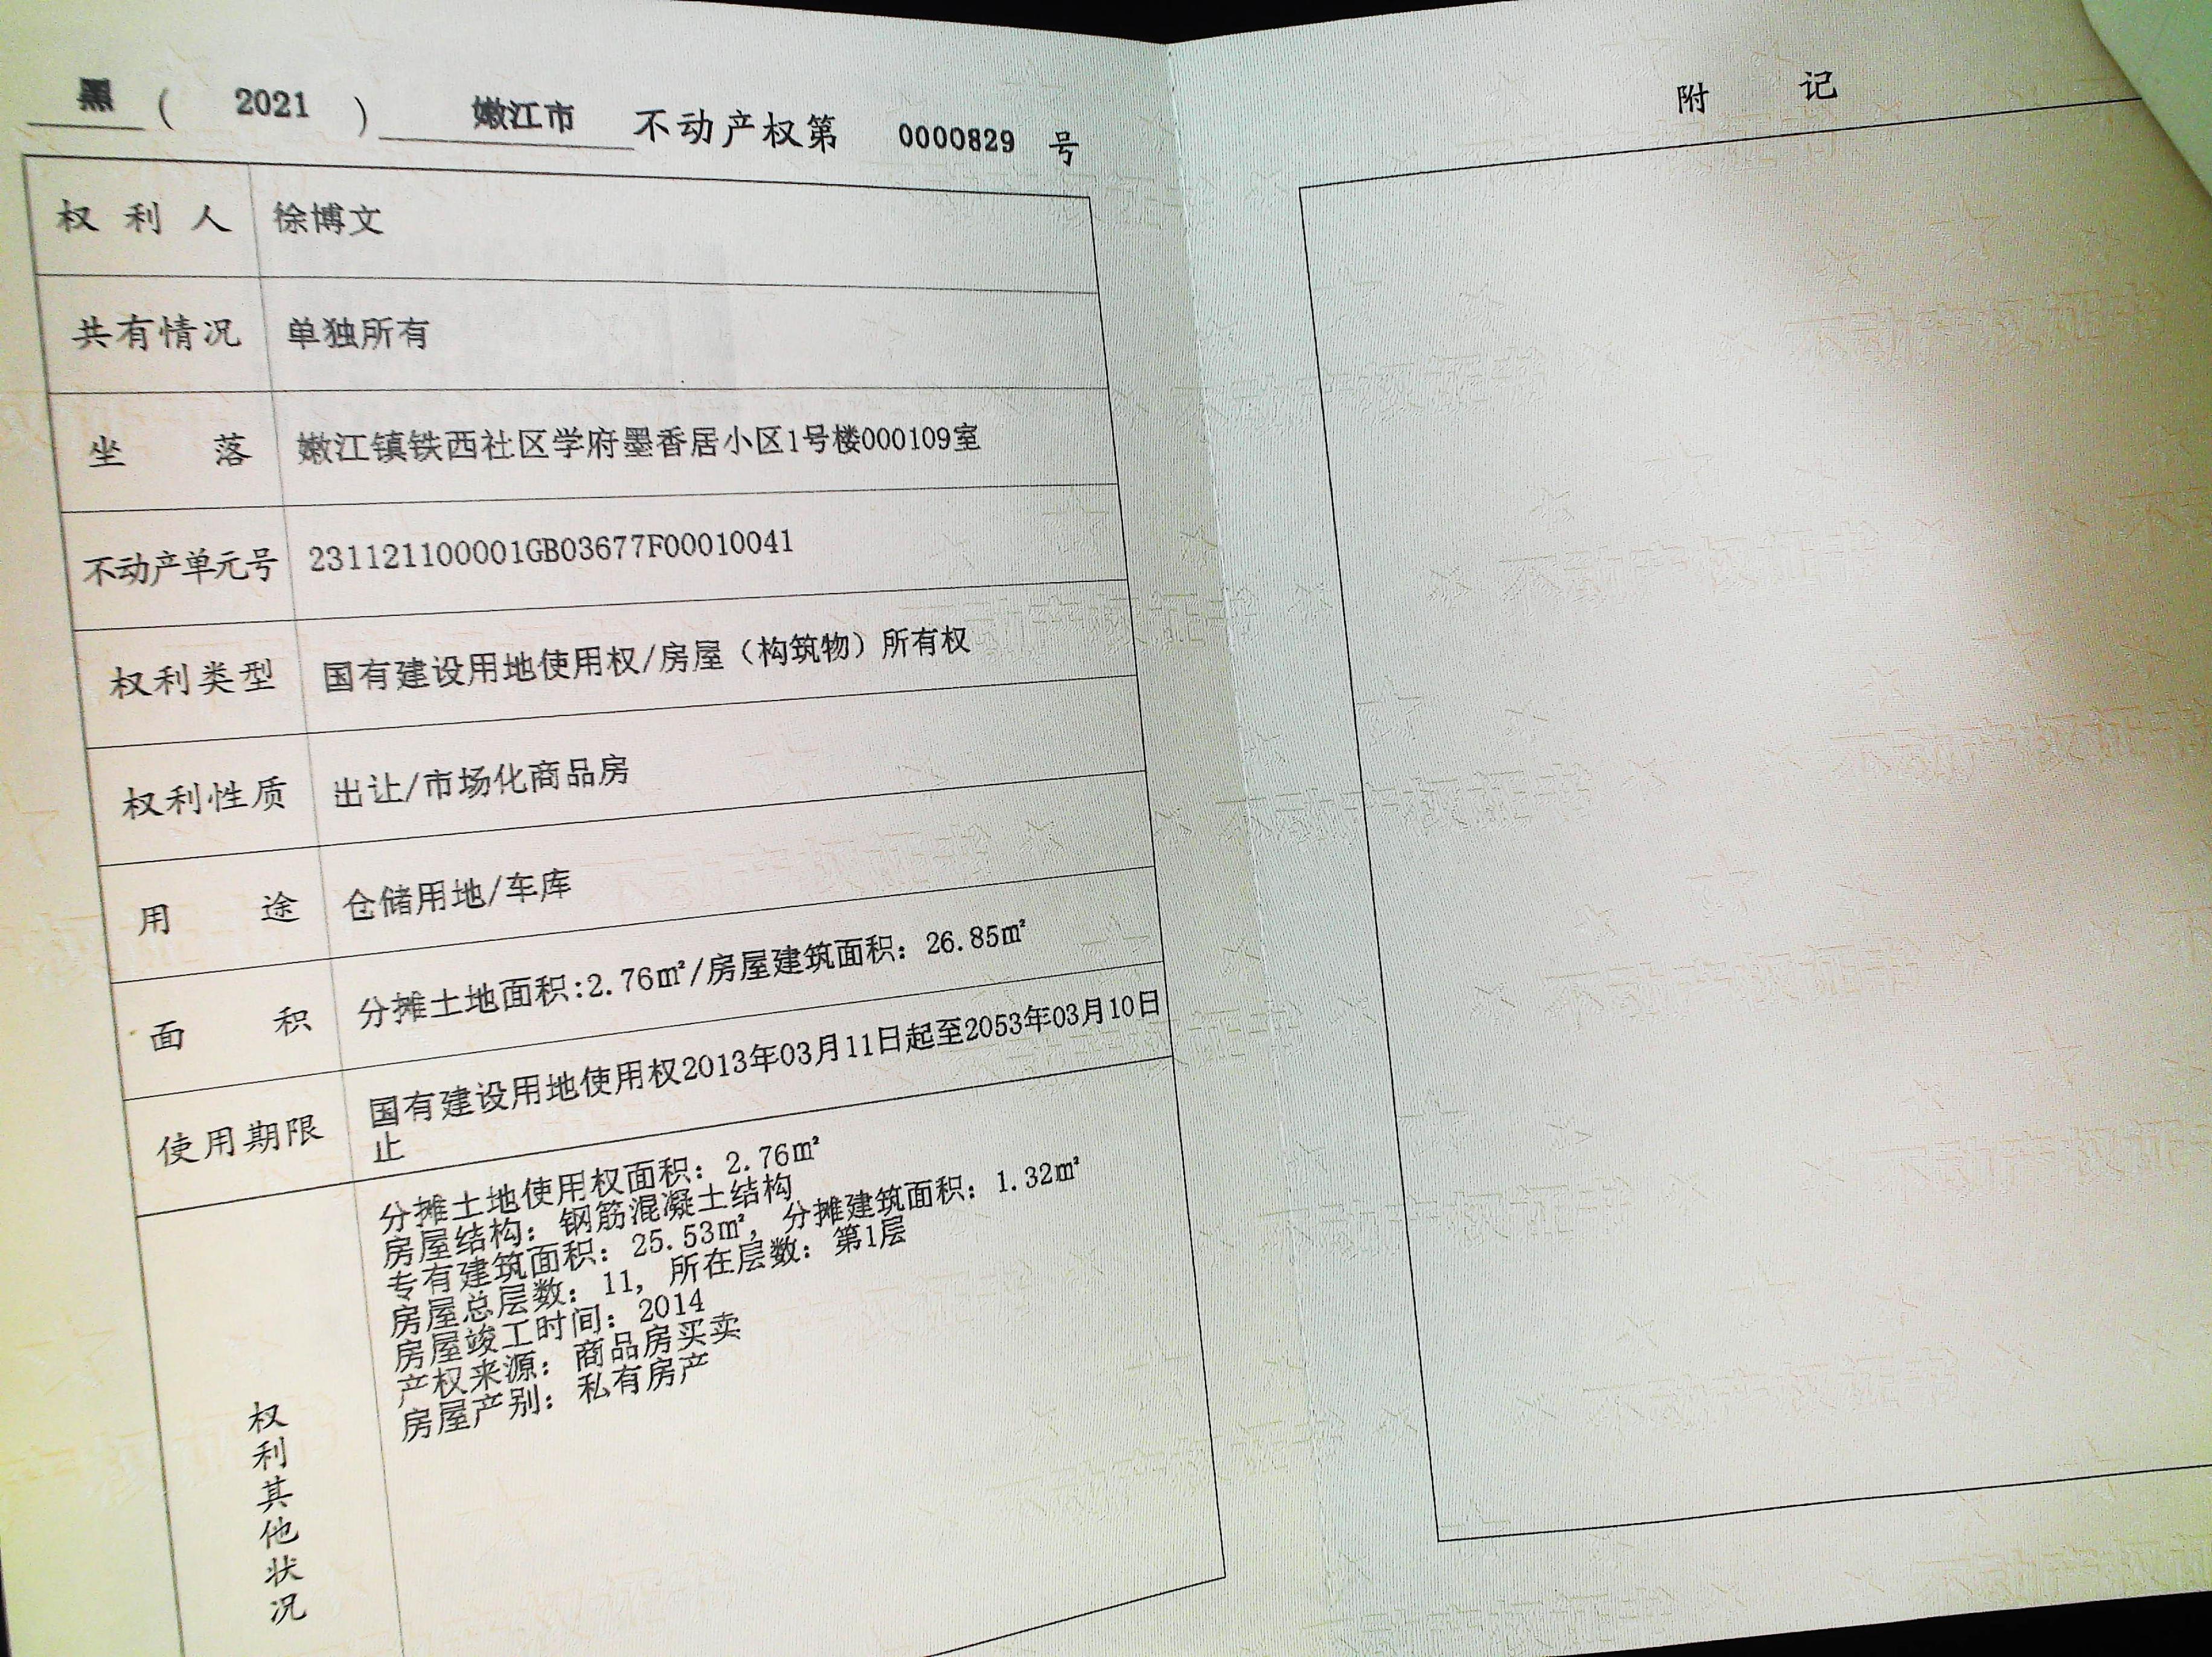 黑 ( 2021 ) 嫩江市 不动产权第 0000829 号
权利人 徐博文
共有情况 单独所有
坐落 嫩江镇铁西社区学府墨香居小区1号楼000109室
不动产单元号 231121100001GB03677F00010041
权利类型 国有建设用地使用权/房屋（构筑物）所有权
权利性质 出让/市场化商品房
用途 仓储用地/车库
面积 分摊土地面积:2.76㎡/房屋建筑面积：26.85㎡
使用期限 国有建设用地使用权2013年03月11日起至2053年03月10日
止
权利其他状况
分摊土地使用权面积：2.76㎡
房屋结构：钢筋混凝土结构
专有建筑面积：25.53㎡，分摊建筑面积：1.32㎡
房屋总层数：11，所在层数：第1层
房屋竣工时间：2014
产权来源：商品房买卖
房屋产别：私有房产
附记